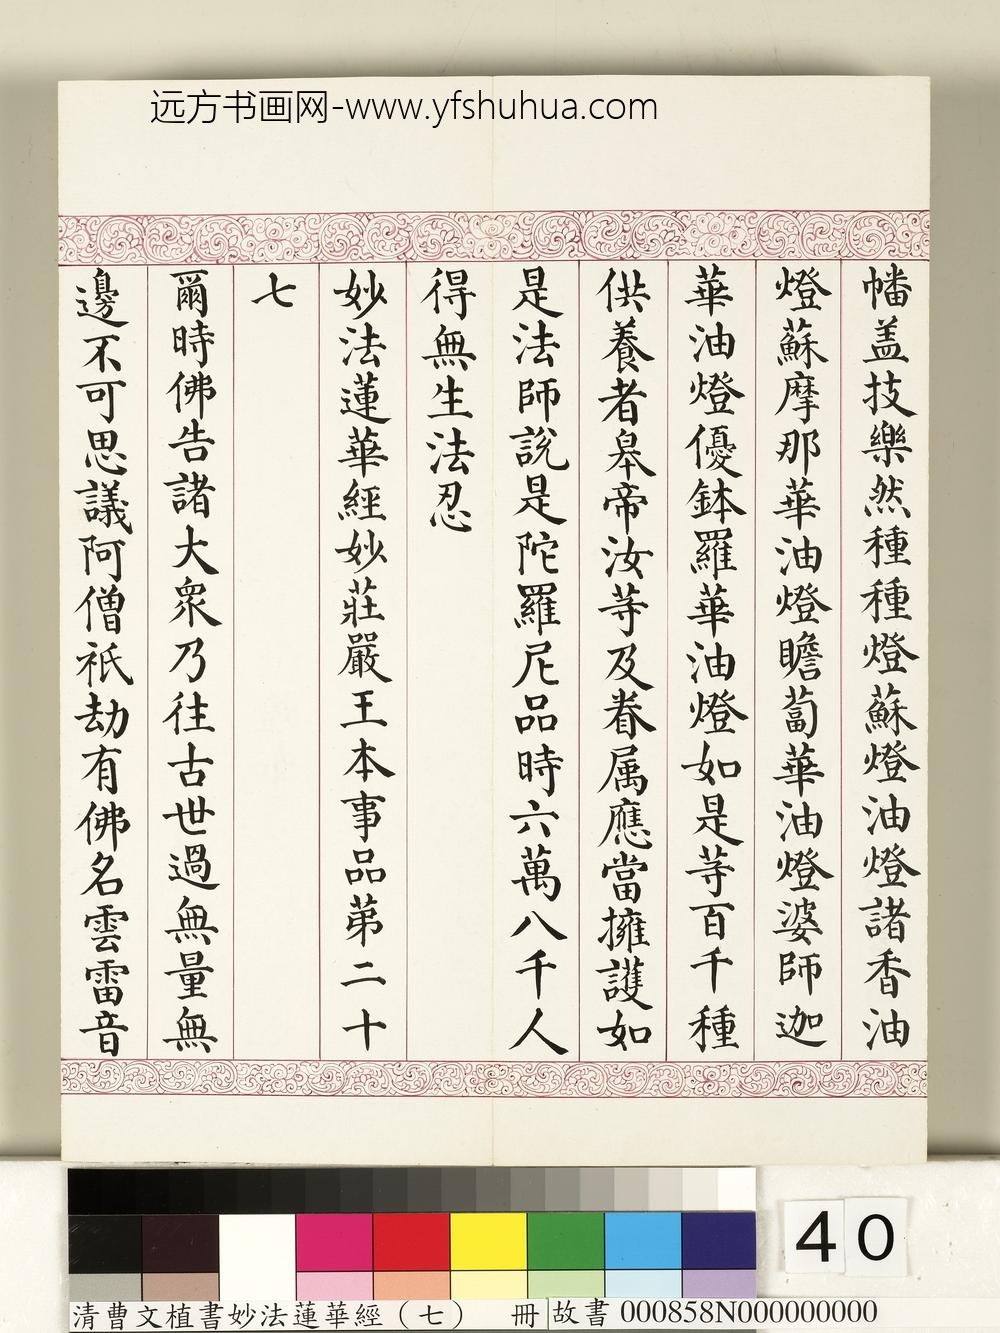 远方书画网-www.yfshuhua.com
幡盖技樂然種種燈蘇燈油燈諸香油
燈蘇摩那華油燈瞻蔔華油燈婆師迦
華油燈優鉢羅華油燈如是等百千種
供養者皋帝汝等及眷属應當擁護如
是法師說是陀羅尼品時六萬八千人
得無生法忍
妙法蓮華經妙莊嚴王本事品苐二十
七
爾時佛告諸大衆乃往古世過無量無
邊不可思議阿僧祇劫有佛名雲雷音
40
清曹文植書妙法蓮華經（七） 冊
故書 000858N000000000